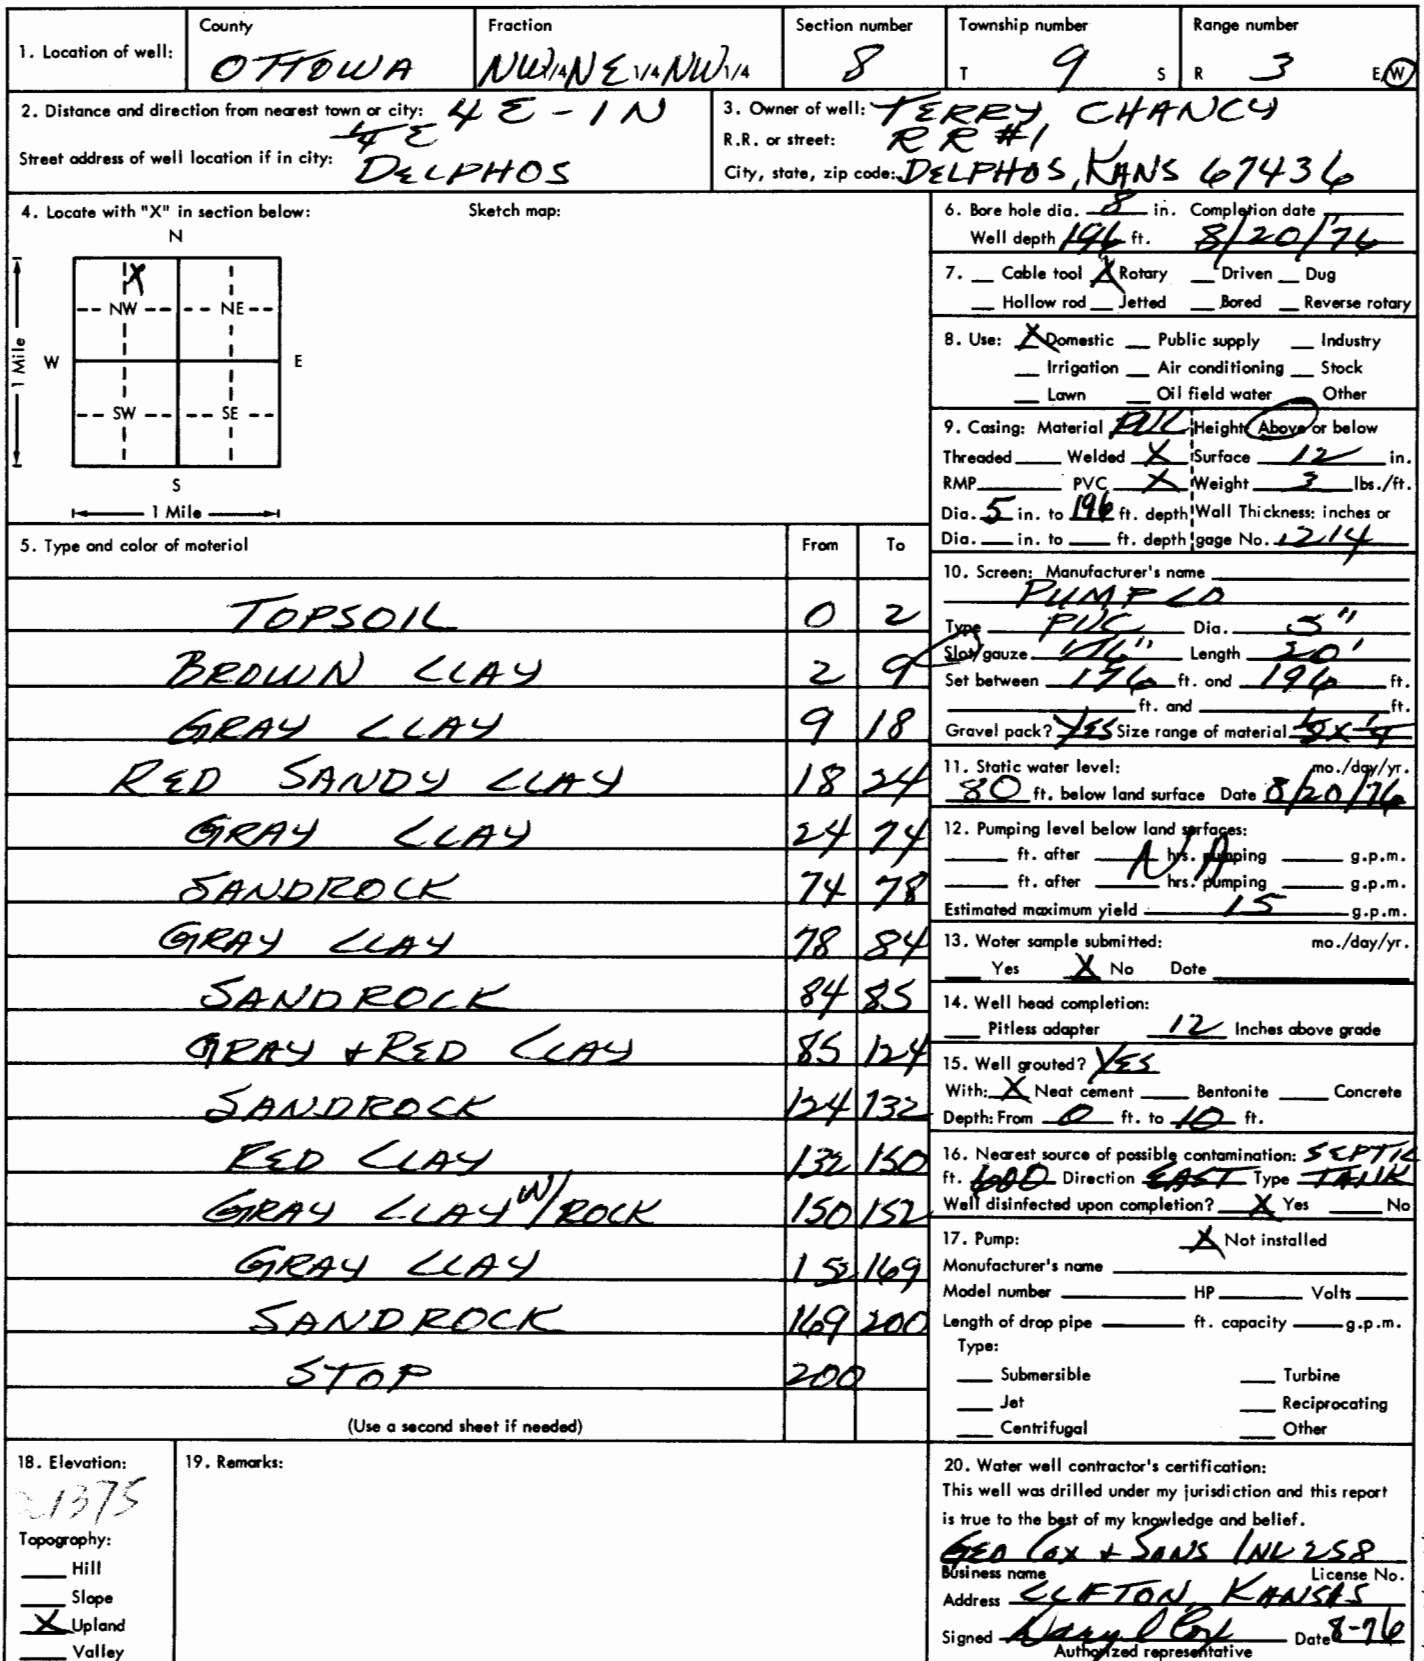 1. Location of well: County OTTOWA Fraction NW 1/4 NE 1/4 NW 1/4 Section number 8 Township number T 9 S Range number R 3 E/W
2. Distance and direction from nearest town or city: 4 E - 1 N
1/4 E
Street address of well location if in city: DELPHOS
3. Owner of well: TERRY CHANCY
R.R. or street: RR #1
City, state, zip code: DELPHOS, KANS 67436
4. Locate with "X" in section below: Sketch map:
N
X
NW NE
W E
1 Mile
SW SE
S
1 Mile
5. Type and color of material From To
TOPSOIL 0 2
BROWN CLAY 2 9
GRAY CLAY 9 18
RED SANDY CLAY 18 24
GRAY CLAY 24 74
SANDROCK 74 78
GRAY CLAY 78 84
SANDROCK 84 85
GRAY + RED CLAY 85 124
SANDROCK 124 132
RED CLAY 132 150
GRAY CLAY W/ROCK 150 152
GRAY CLAY 152 169
SANDROCK 169 200
STOP 200
(Use a second sheet if needed)
6. Bore hole dia. 8 in. Completion date
Well depth 196 ft. 8/20/76
7. Cable tool X Rotary Driven Dug
Hollow rod Jetted Bored Reverse rotary
8. Use: X Domestic Public supply Industry
Irrigation Air conditioning Stock
Lawn Oil field water Other
9. Casing: Material PVC Height: Above or below
Threaded Welded X Surface 12 in.
RMP PVC X Weight 3 lbs./ft.
Dia. 5 in. to 196 ft. depth Wall Thickness: inches or
Dia. in. to ft. depth gage No. .214
10. Screen: Manufacturer's name
PUMP CO
Type PVC Dia. 5"
Slot/gauze 1/16" Length 20'
Set between 176 ft. and 196 ft.
ft. and ft.
Gravel pack? YES Size range of material 1/8 x 1/4
11. Static water level: mo./day/yr.
80 ft. below land surface Date 8/20/76
12. Pumping level below land surfaces:
ft. after hrs. pumping g.p.m.
NA
ft. after hrs. pumping g.p.m.
Estimated maximum yield 15 g.p.m.
13. Water sample submitted: mo./day/yr.
Yes X No Date
14. Well head completion:
Pitless adapter 12 Inches above grade
15. Well grouted? YES
With: X Neat cement Bentonite Concrete
Depth: From 0 ft. to 10 ft.
16. Nearest source of possible contamination: SEPTIC
ft. Direction EAST Type TANK
Well disinfected upon completion? X Yes No
17. Pump: X Not installed
Manufacturer's name
Model number HP Volts
Length of drop pipe ft. capacity g.p.m.
Type:
Submersible Turbine
Jet Reciprocating
Centrifugal Other
18. Elevation:
1375
Topography:
Hill
Slope
X Upland
Valley
19. Remarks:
20. Water well contractor's certification:
This well was drilled under my jurisdiction and this report
is true to the best of my knowledge and belief.
GEO COX + SONS INC 258
Business name License No.
Address CLIFTON, KANSAS
Signed Daryl Cox Date 8-76
Authorized representative